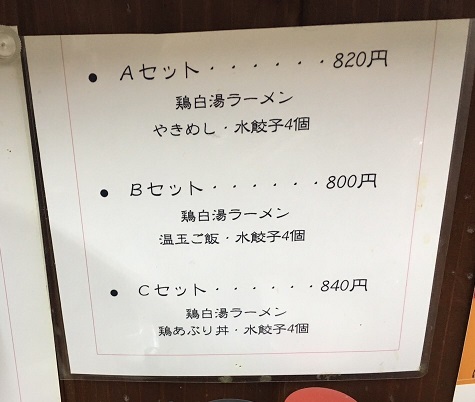 ● Aセット・・・・・・820円
鶏白湯ラーメン
やきめし・水餃子4個
● Bセット・・・・・・800円
鶏白湯ラーメン
温玉ご飯・水餃子4個
● Cセット・・・・・・840円
鶏白湯ラーメン
鶏あぶり丼・水餃子4個